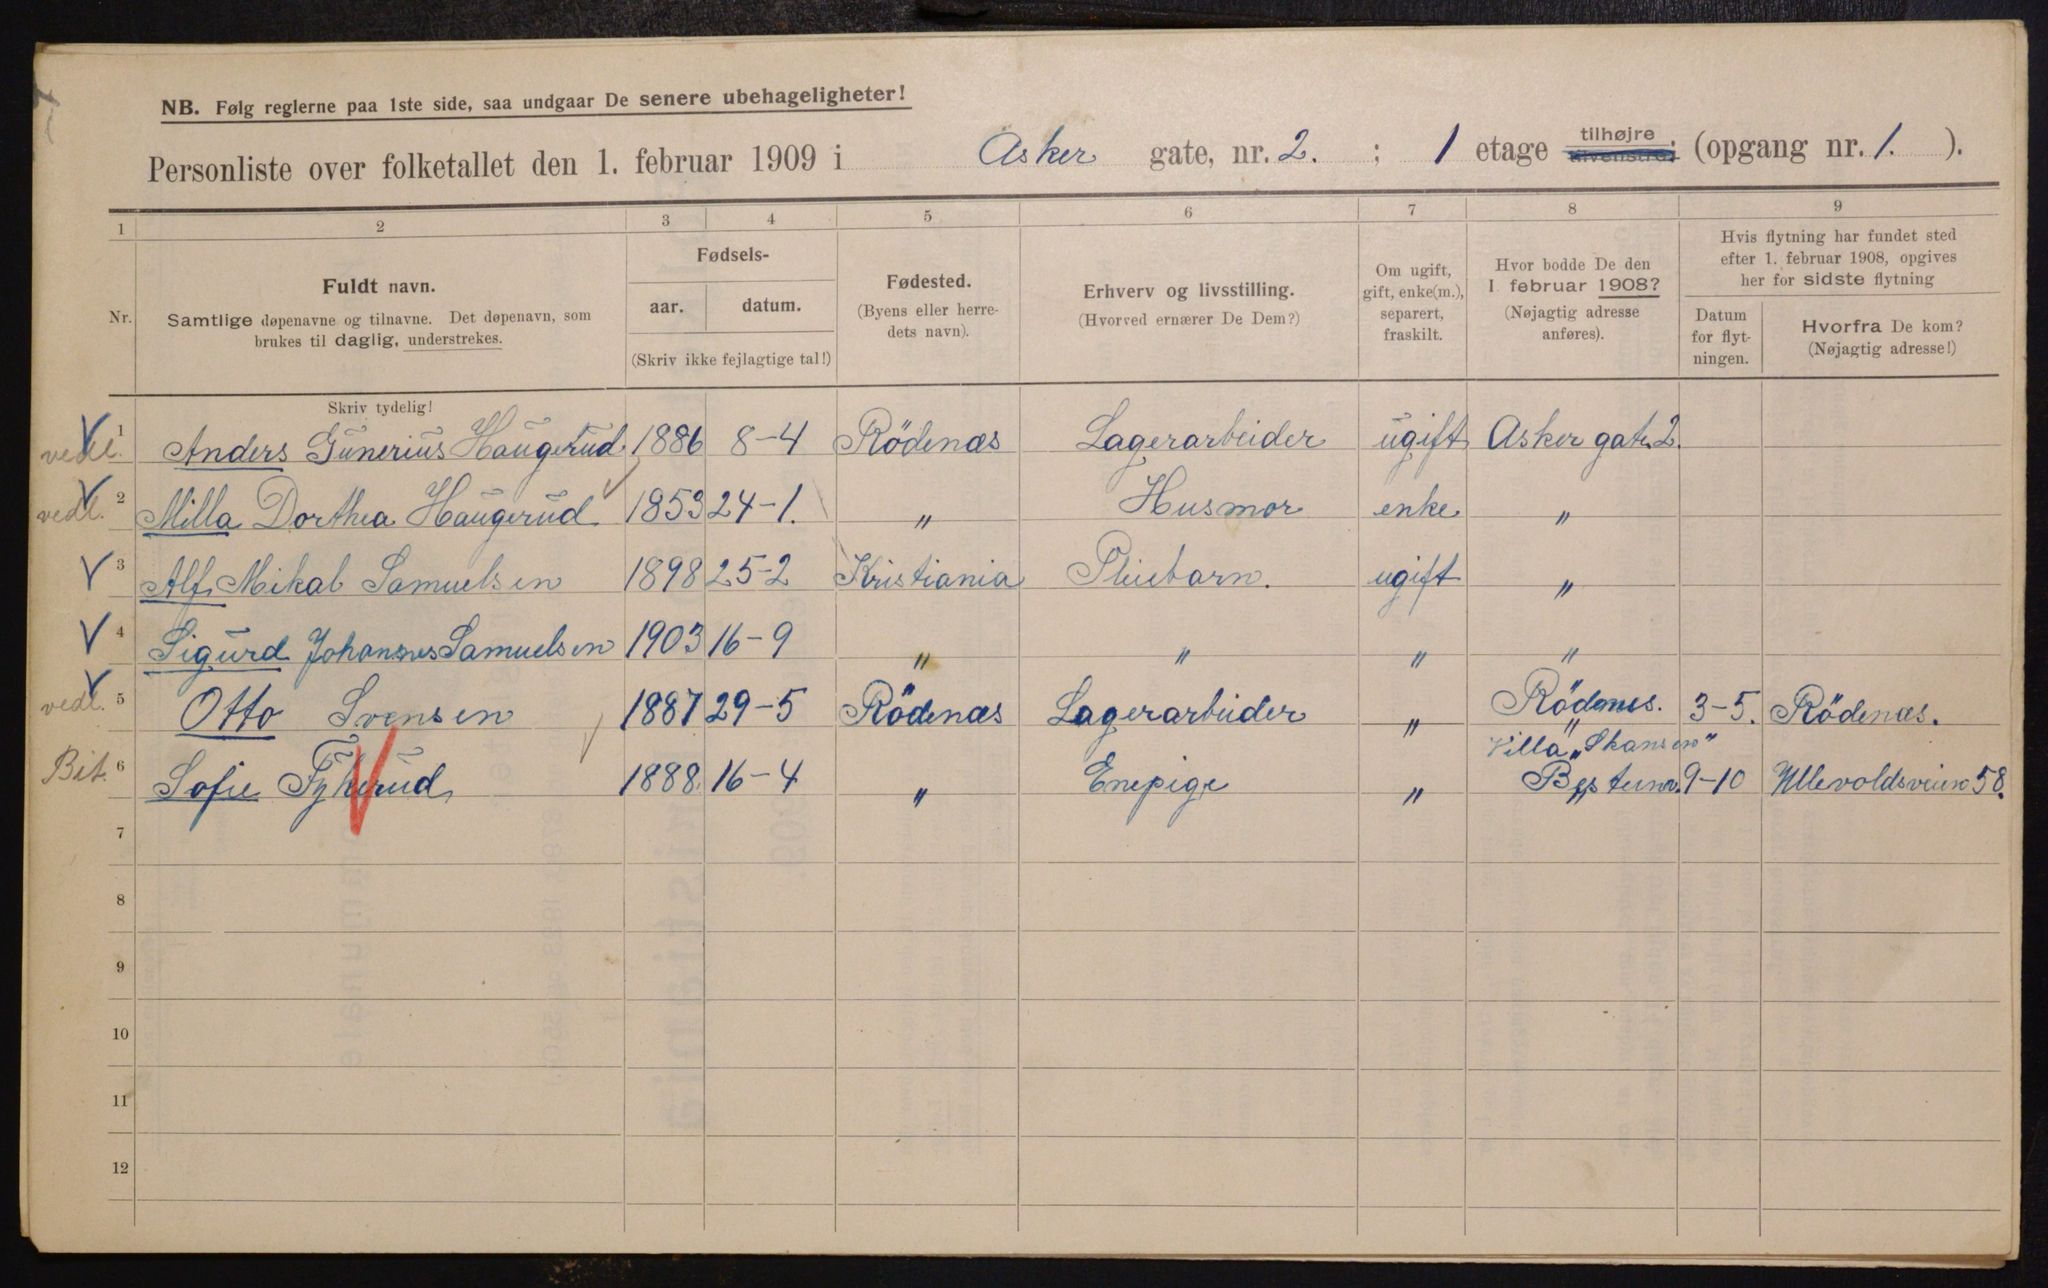 NB. Følg reglerne paa 1ste side, saa undgaar De senere ubehageligheter!
Personliste over folketallet den 1. februar 1909 i Asker gate, nr. 2. ; 1 etage tilhøjre tilvenstre; (opgang nr. 1. ).
1 2 3 4 5 6 7 8 9
Nr.
Fuldt navn.
Samtlige døpenavne og tilnavne. Det døpenavn, som
brukes til daglig, understrekes.
Fødsels-
aar. datum.
(Skriv ikke fejlagtige tal!)
Fødested.
(Byens eller herre-
dets navn).
Erhverv og livsstilling.
(Hvorved ernærer De Dem?)
Om ugift,
gift, enke(m.),
separert,
fraskilt.
Hvor bodde De den
1. februar 1908?
(Nøjagtig adresse
anføres).
Hvis flytning har fundet sted
efter 1. februar 1908, opgives
her for sidste flytning
Datum
for flyt-
ningen.
Hvorfra De kom?
(Nøjagtig adresse!)
Skriv tydelig!
vedl. 1 Anders Gunerius Haugerud 1886 8-4 Rödenæs Lagerarbeider ugift Asker gate 2.
vedl. 2 Milla Dorthea Haugerud 1853 24-1. " Husmor enke "
3 Alf Mikal Samuelsen 1898 25-2 Kristiania Pleiebarn. ugift "
4 Sigurd Johannes Samuelsen 1903 16-9 " " " "
vedl. 5 Otto Svensen 1887 29-5 Rödenæs Lagerarbeider " Rödenæs. 3-5. Rödenæs.
Villa "Skansen"
Bit. 6 Sofie Fykerud 1888. 16-4 " Enepige " Bestum. 9-10 Ullevoldsveien 58.
7
8
9
10
11
12